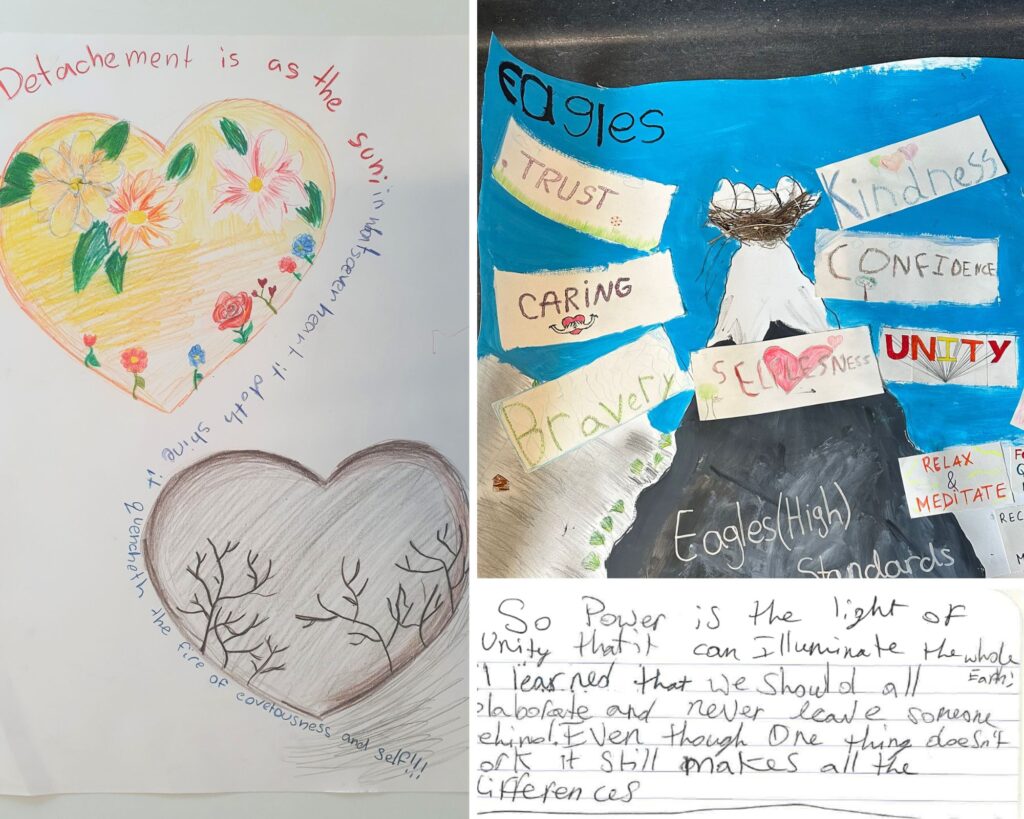 Detachement is as the sun; in whatsoever heart it doth shine it quencheth the fire of covetousness and self!!!
Eagles
TRUST
Kindness
CARING
CONFIDENCE
Bravery
SELFLESNESS
UNITY
RELAX
&
MEDITATE
REC
Eagles(High)
Standards
So Power is the light of
Unity that it can Illuminate the whole
Earth!
I learned that we should all
elaborate and never leave someone
ehind. Even though One thing doesn't
ork it still makes all the
differences